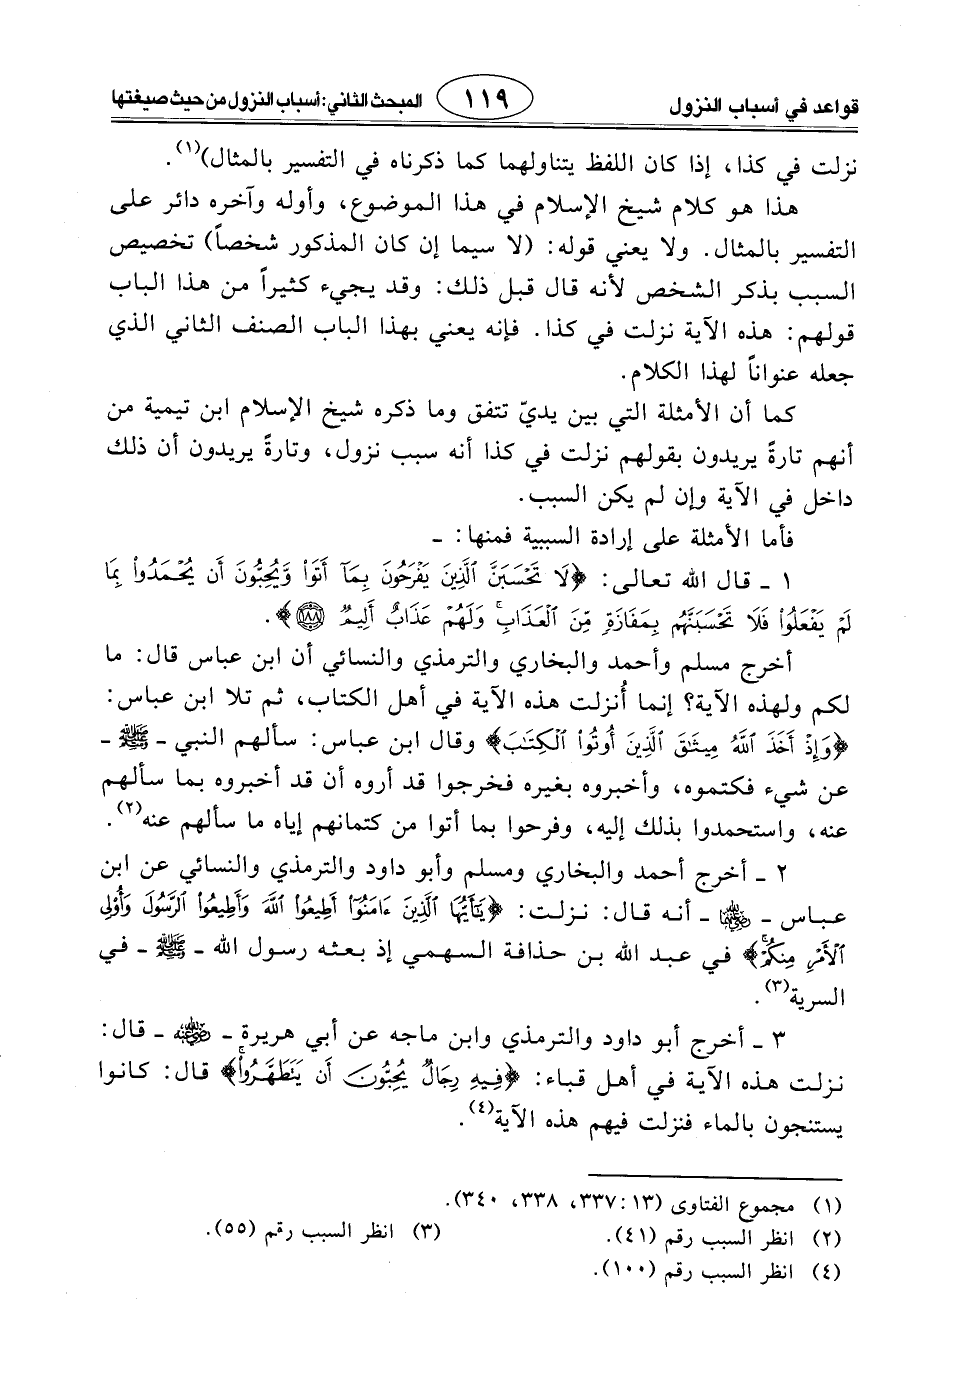 قواعد في أسباب النزول ١١٩ المبحث الثاني: أسباب النزول من حيث صيغتها
نزلت في كذا، إذا كان اللفظ يتناولهما كما ذكرناه في التفسير بالمثال)(١).
هذا هو كلام شيخ الإسلام في هذا الموضوع، وأوله وآخره دائر على
التفسير بالمثال. ولا يعني قوله: (لا سيما إن كان المذكور شخصاً) تخصيص
السبب بذكر الشخص لأنه قال قبل ذلك: وقد يجيء كثيراً من هذا الباب
قولهم: هذه الآية نزلت في كذا. فإنه يعني بهذا الباب الصنف الثاني الذي
جعله عنواناً لهذا الكلام.
كما أن الأمثلة التي بين يديّ تتفق وما ذكره شيخ الإسلام ابن تيمية من
أنهم تارةً يريدون بقولهم نزلت في كذا أنه سبب نزول، وتارةً يريدون أن ذلك
داخل في الآية وإن لم يكن السبب.
فأما الأمثلة على إرادة السببية فمنها: ـ
١ ـ قال الله تعالى: ﴿لَا تَحْسَبَنَّ ٱلَّذِينَ يَفْرَحُونَ بِمَآ أَتَوا۟ وَّيُحِبُّونَ أَن يُحْمَدُوا۟ بِمَا
لَمْ يَفْعَلُوا۟ فَلَا تَحْسَبَنَّهُم بِمَفَازَةٍ مِّنَ ٱلْعَذَابِ ۖ وَلَهُمْ عَذَابٌ أَلِيمٌ ١٨٨﴾.
أخرج مسلم وأحمد والبخاري والترمذي والنسائي أن ابن عباس قال: ما
لكم ولهذه الآية؟ إنما أُنزلت هذه الآية في أهل الكتاب، ثم تلا ابن عباس:
﴿وَإِذْ أَخَذَ ٱللَّهُ مِيثَٰقَ ٱلَّذِينَ أُوتُوا۟ ٱلْكِتَٰبَ﴾ وقال ابن عباس: سألهم النبي ـ ﷺ ـ
عن شيء فكتموه، وأخبروه بغيره فخرجوا قد أروه أن قد أخبروه بما سألهم
عنه، واستحمدوا بذلك إليه، وفرحوا بما أتوا من كتمانهم إياه ما سألهم عنه(٢).
٢ ـ أخرج أحمد والبخاري ومسلم وأبو داود والترمذي والنسائي عن ابن
عباس ـ رضي الله عنهما ـ أنه قال: نزلت: ﴿يَٰٓأَيُّهَا ٱلَّذِينَ ءَامَنُوٓا۟ أَطِيعُوا۟ ٱللَّهَ وَأَطِيعُوا۟ ٱلرَّسُولَ وَأُو۟لِى
ٱلْأَمْرِ مِنكُمْ﴾ في عبد الله بن حذافة السهمي إذ بعثه رسول الله ـ ﷺ ـ في
السرية(٣).
٣ ـ أخرج أبو داود والترمذي وابن ماجه عن أبي هريرة ـ رضي الله عنه ـ قال:
نزلت هذه الآية في أهل قباء: ﴿فِيهِ رِجَالٌ يُحِبُّونَ أَن يَتَطَهَّرُوا۟﴾ قال: كانوا
يستنجون بالماء فنزلت فيهم هذه الآية(٤).
(١) مجموع الفتاوى (١٣: ٣٣٧، ٣٣٨، ٣٤٠).
(٢) انظر السبب رقم (٤١). (٣) انظر السبب رقم (٥٥).
(٤) انظر السبب رقم (١٠٠).